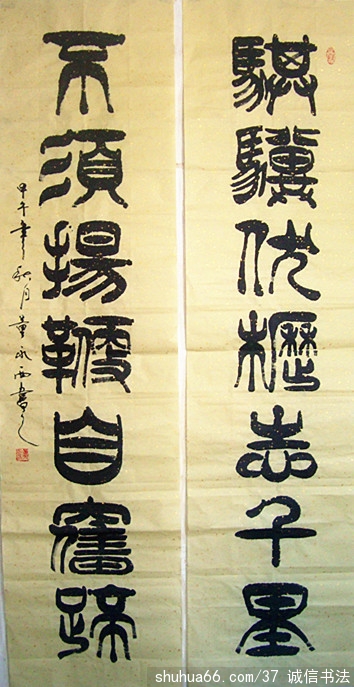 騏驥伏櫪志千里
不須揚鞭自奮蹄
甲午年秋月董永西書
shuhua66.com/37 诚信书法